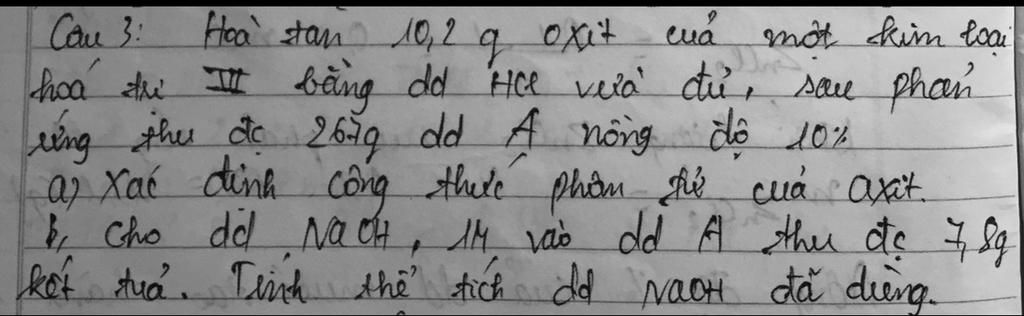 Câu 3: Hoà tan 10,2 g oxit cuả một kim loại
hoá trị III bằng dd HCl vừa đủ, sau phản
ứng thu đc 267g dd A nồng độ 10%
a) Xác định công thức phân tử cuả axit.
b, Cho dd NaOH, 1M vào dd A thu đc 7,8g
kết tuả. Tính thể tích dd NaOH đã dùng.